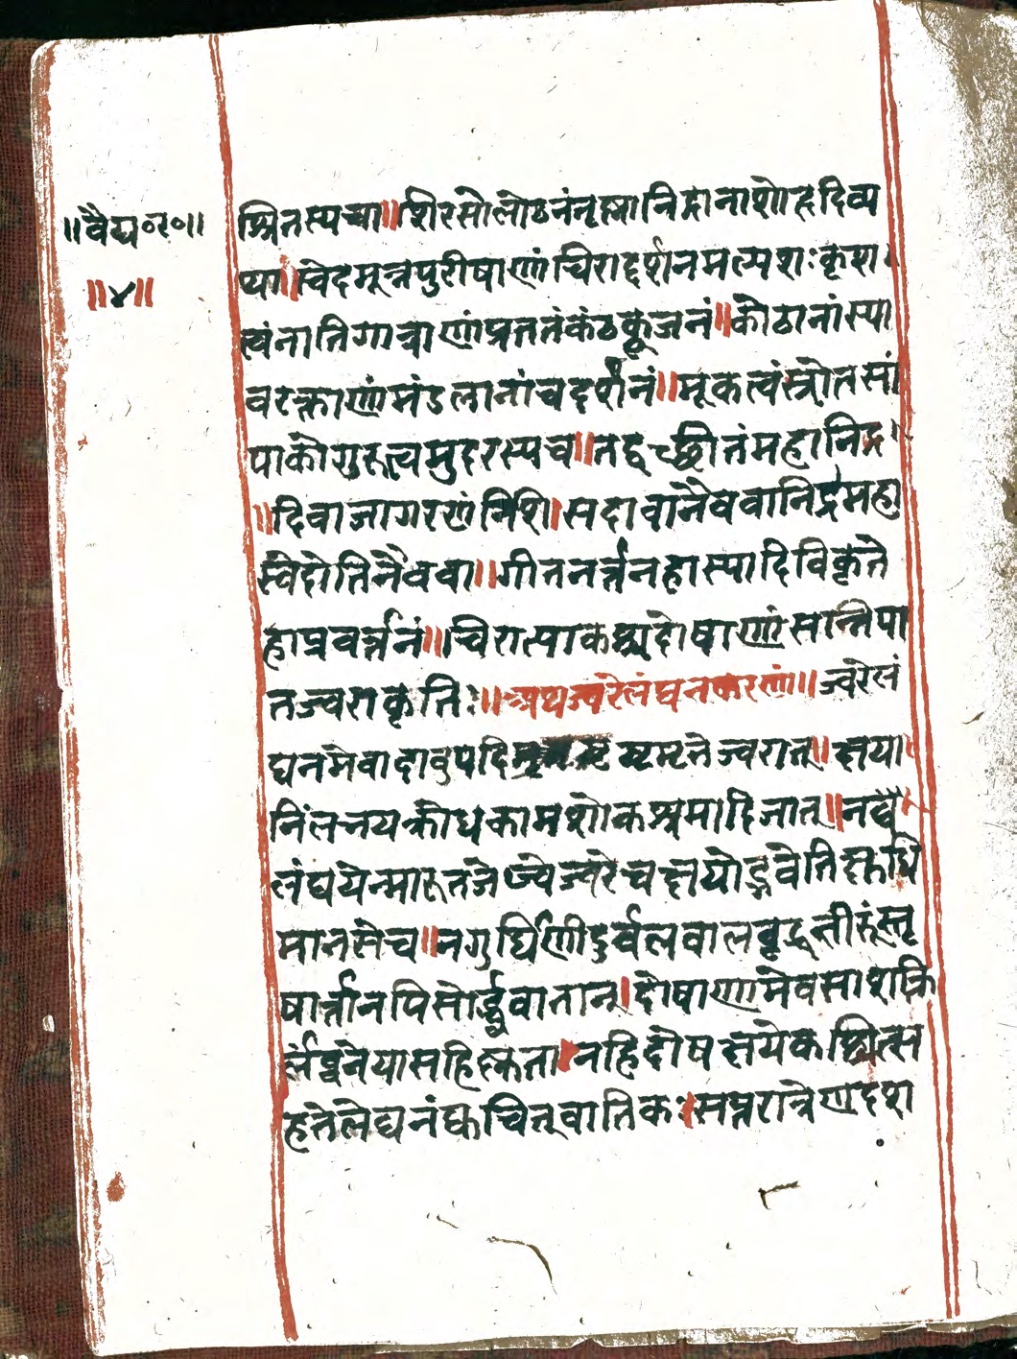 ॥वैद्य०र०॥
॥४॥
श्रितस्यच्या॥शिरसोलोठनंतृष्णानिद्रानाशोहृदिव्य
था॥स्वेदमूत्रपुरीषाणांचिराद्दर्शनमल्पशःकृशा
त्वंनातिगात्राणांप्रततंकंठकूजनं॥कोठानांस्या
वरक्ताणांमंडलानांचदर्शनं॥मूकत्वंस्त्रोतसां
पाकौगुरुत्वमुदरस्यच॥तद्वच्छीतंमहानिद्रा
॥दिवाजागरणंनिशि॥सदावानैववानिद्रामहा
स्वेदोतिनैववा॥गीतनर्त्तनहास्यादिविकृते
हाप्रवर्त्तनं॥चिरात्पाकश्चदोषाणांसान्निपा
तज्वराकृतिः॥अथज्वरेलंघनकरणं॥ज्वरेलं
घनमेवादावुपदि मृतेज्वरात्॥क्षया
निलभयक्रोधकामशोकश्रमादिजात्॥नद्वै
लंघयेन्मारुतजेज्वरेचक्षयोद्भवेति
मानसेच॥नगुर्विणीदुर्वलवालवृद्धभीरुंस्तृ
षार्त्तानपिसोर्द्धवातान्।दोषाणामेवसाशक्ति
र्लंघनेयासहिस्नता।नहिदोषक्षयेकश्चित्स
हतेलंघनंक्वचित्वातिकःसप्तरात्रेणदश